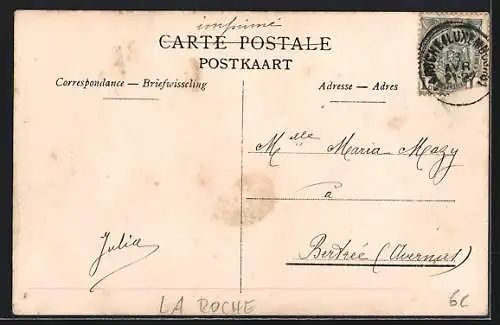 imprimé
CARTE POSTALE
POSTKAART
Correspondance — Briefwisseling
Adresse — Adres
Mlle Maria Mazy
à
Julia
Bertrée (Avernas)
LA ROCHE
6E